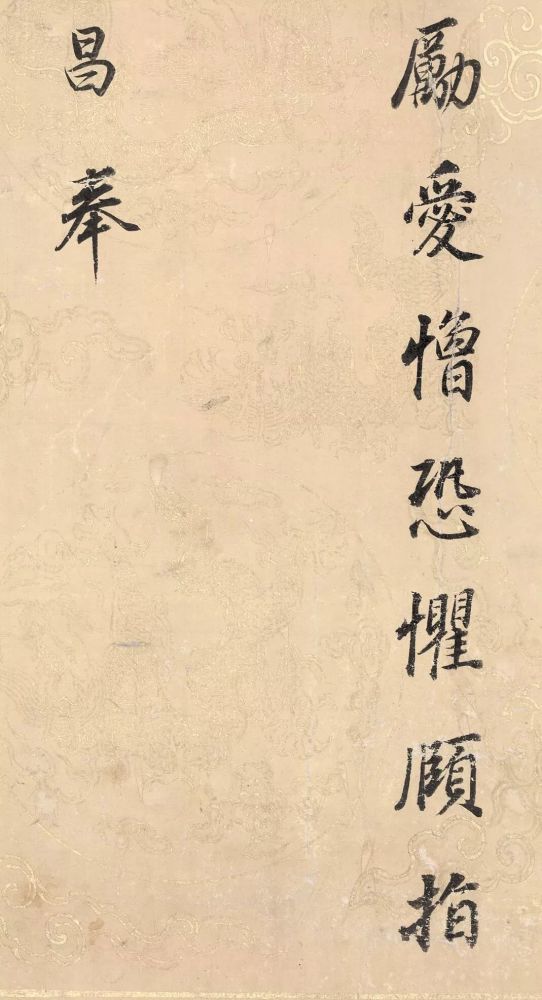 勵愛憎恐懼顧指
昌奉